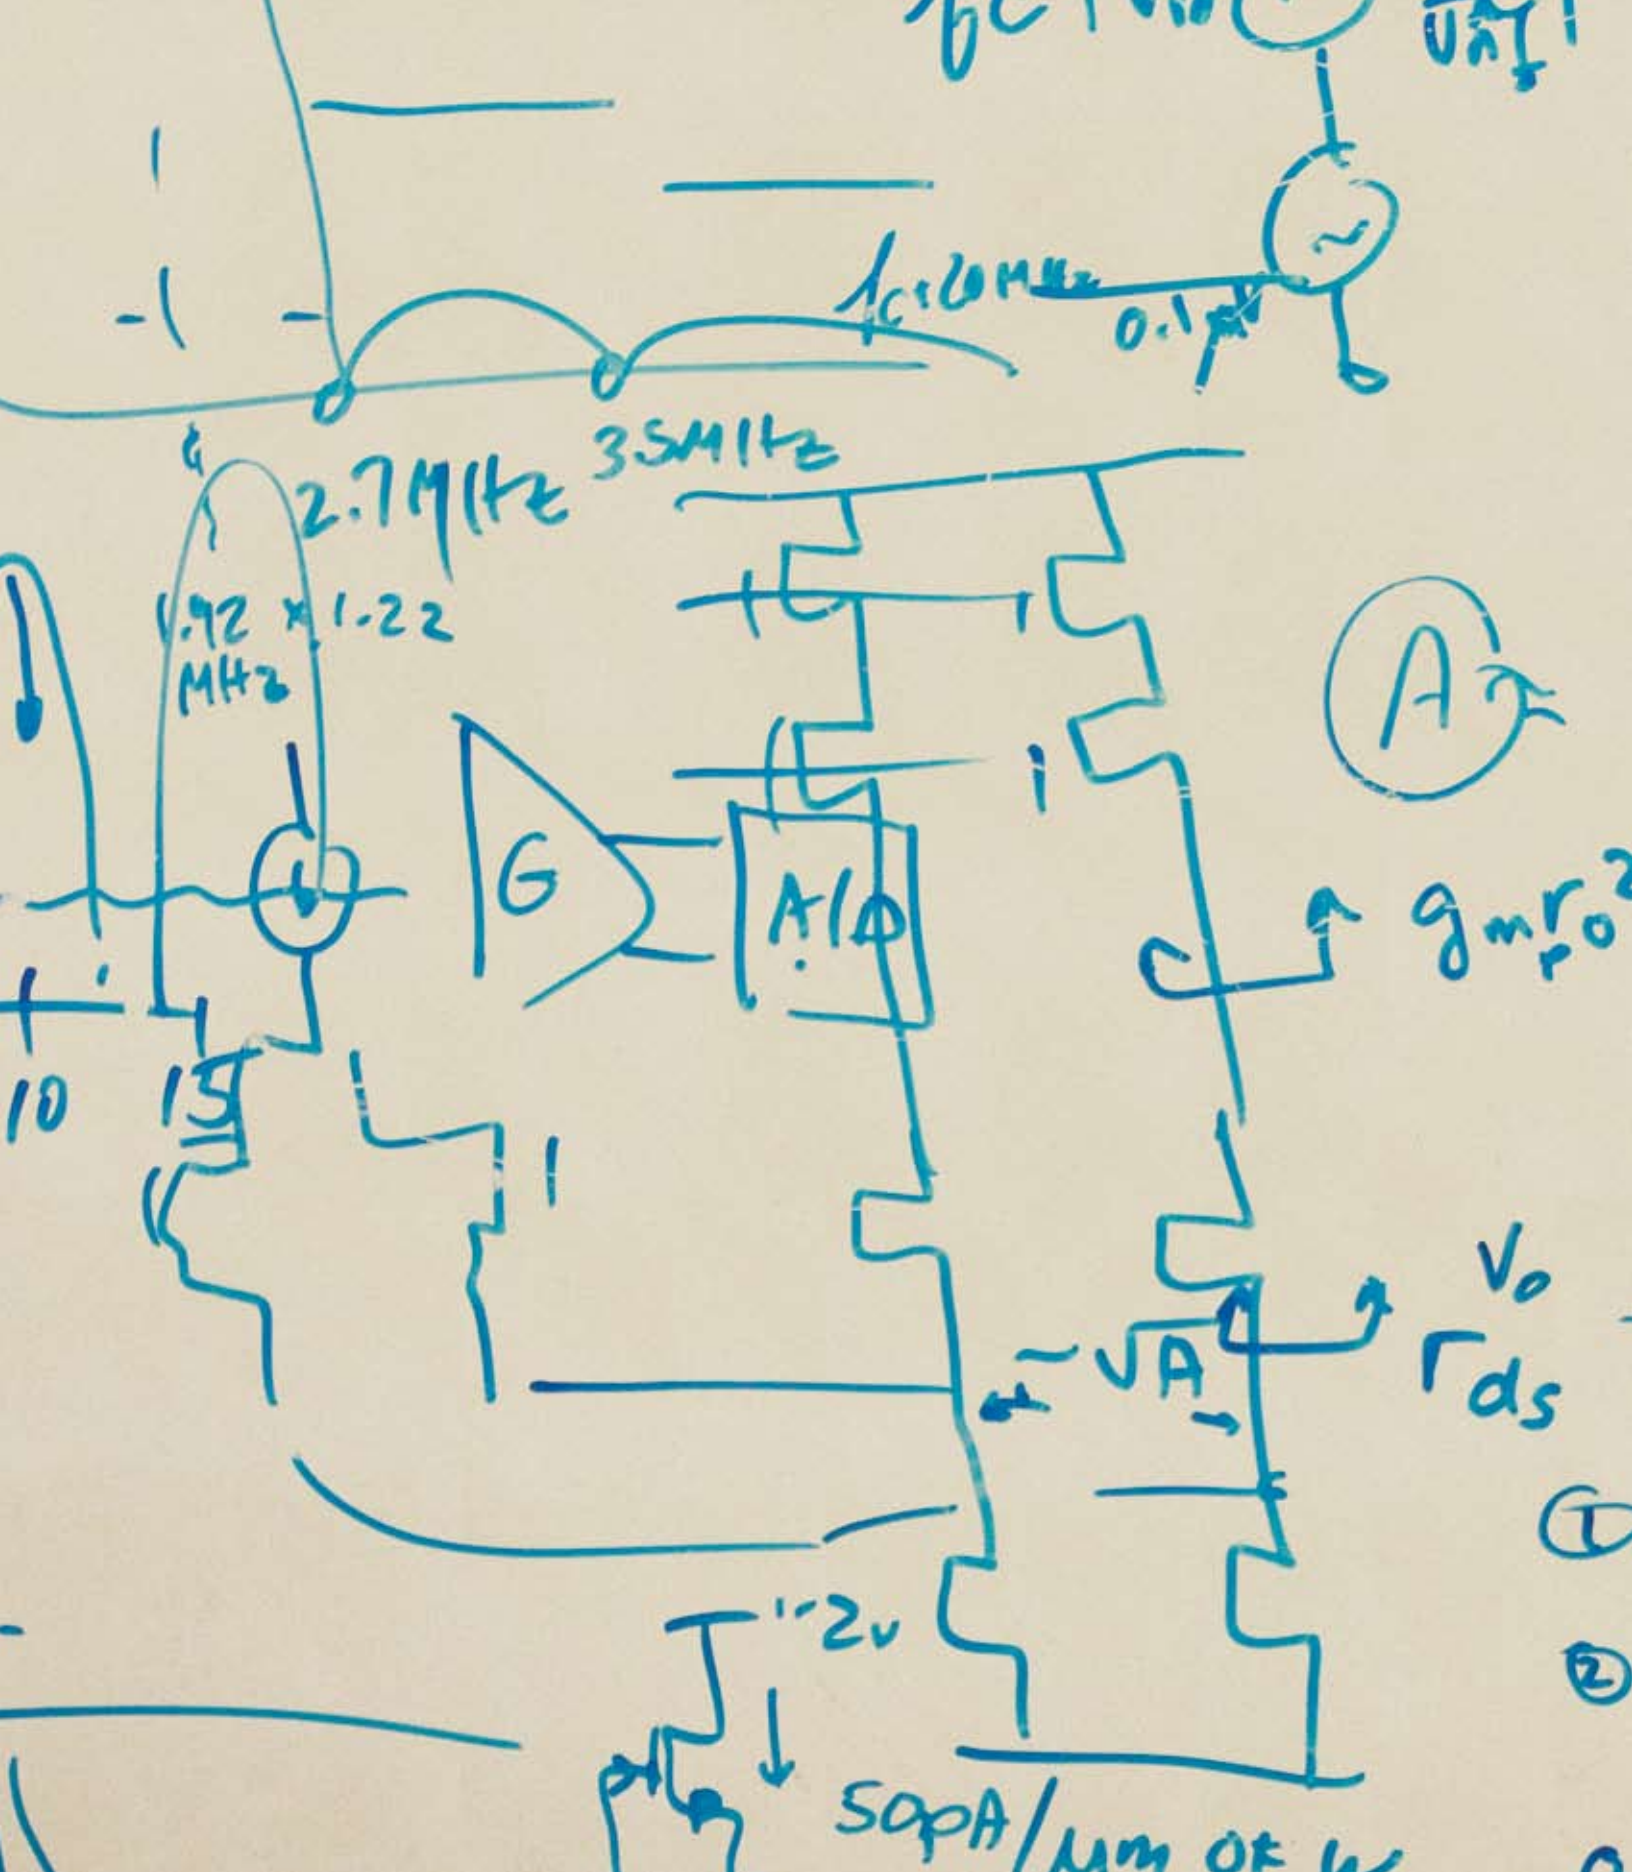 fc=20MHz
0.1
35MHz
2.7MHz
1.92 x 1.22
MHz
A
G
A/D
gm ro²
10
15
Vo
~√A
rds
1
1-2v
2
50pA/μm of w